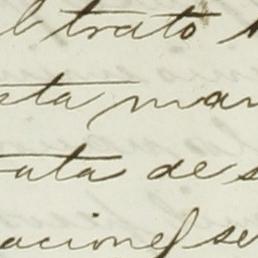 trato
sta man
ata de s
aciones se